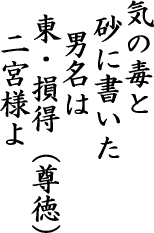 気の毒と
砂に書いた
男名は
東・損得（尊徳）
二宮様よ